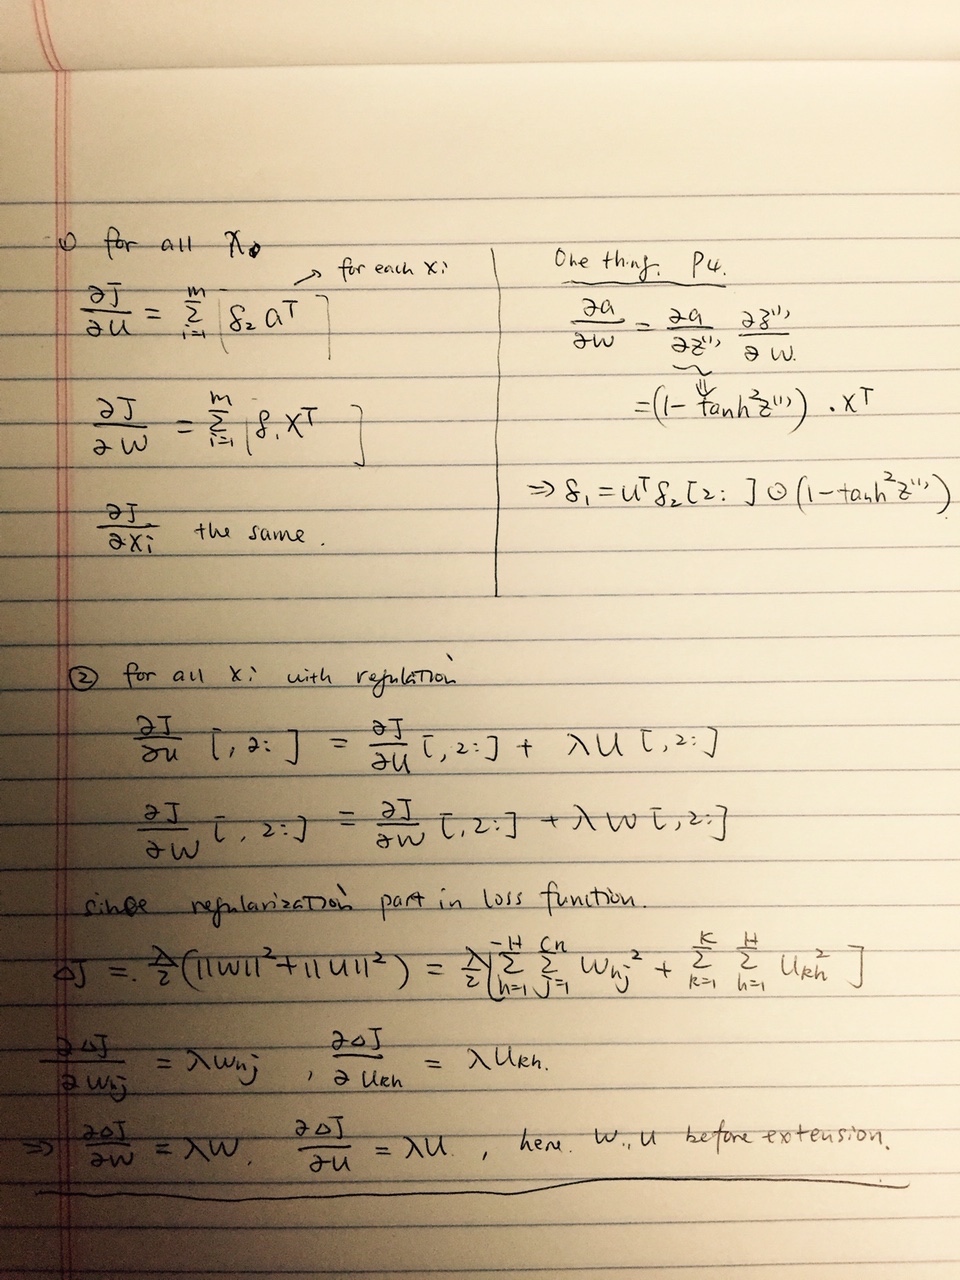 ① for all Xi
∂J/∂U = Σ_{i=1}^{m} [δ₂ aᵀ] → for each xi
∂J/∂W = Σ_{i=1}^{m} [δ₁ xᵀ]
∂J/∂xi the same.
One thing. P4.
∂a/∂W = ∂a/∂z⁽¹⁾ ∂z⁽¹⁾/∂W.
⇓
= (1 - tanh² z⁽¹⁾) . xᵀ
⇒ δ₁ = Uᵀδ₂[2: ] ⊙ (1 - tanh² z⁽¹⁾)
② for all xi with regulation
∂J/∂U [, 2: ] = ∂J/∂U [, 2:] + λU [, 2:]
∂J/∂W [, 2:] = ∂J/∂W [, 2:] + λW [, 2:]
since regularization part in loss function.
ΔJ = λ/2 (||W||² + ||U||²) = λ/2 [Σ_{h=1}^{H} Σ_{j=1}^{Cn} W_{hj}² + Σ_{k=1}^{K} Σ_{h=1}^{H} U_{kh}²]
∂ΔJ/∂W_{hj} = λW_{hj} , ∂ΔJ/∂U_{kh} = λU_{kh}.
⇒ ∂ΔJ/∂W = λW. ∂ΔJ/∂U = λU. , here. W., U before extension.